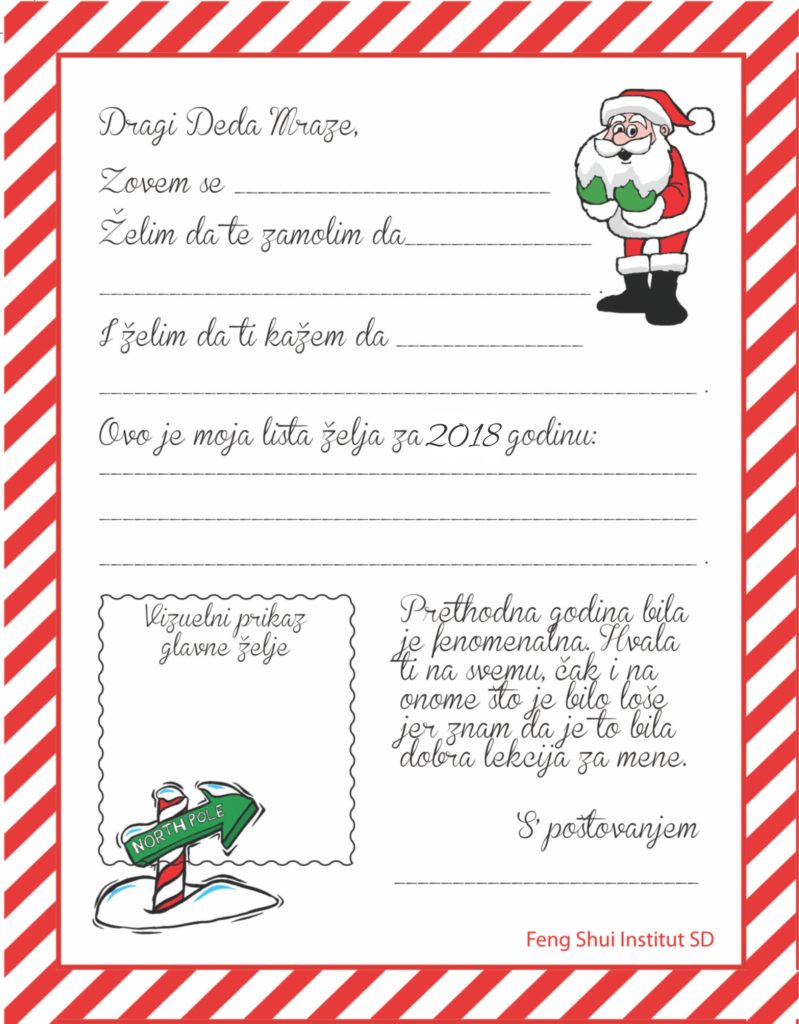 Dragi Deda Mraze,
Zovem se
Želim da te zamolim da
.
I želim da ti kažem da
.
Ovo je moja lista želja za 2018 godinu:
.
Vizuelni prikaz
glavne želje
NORTH POLE
Prethodna godina bila
je fenomenalna. Hvala
ti na svemu, čak i na
onome što je bilo loše
jer znam da je to bila
dobra lekcija za mene.
S' poštovanjem
Feng Shui Institut SD